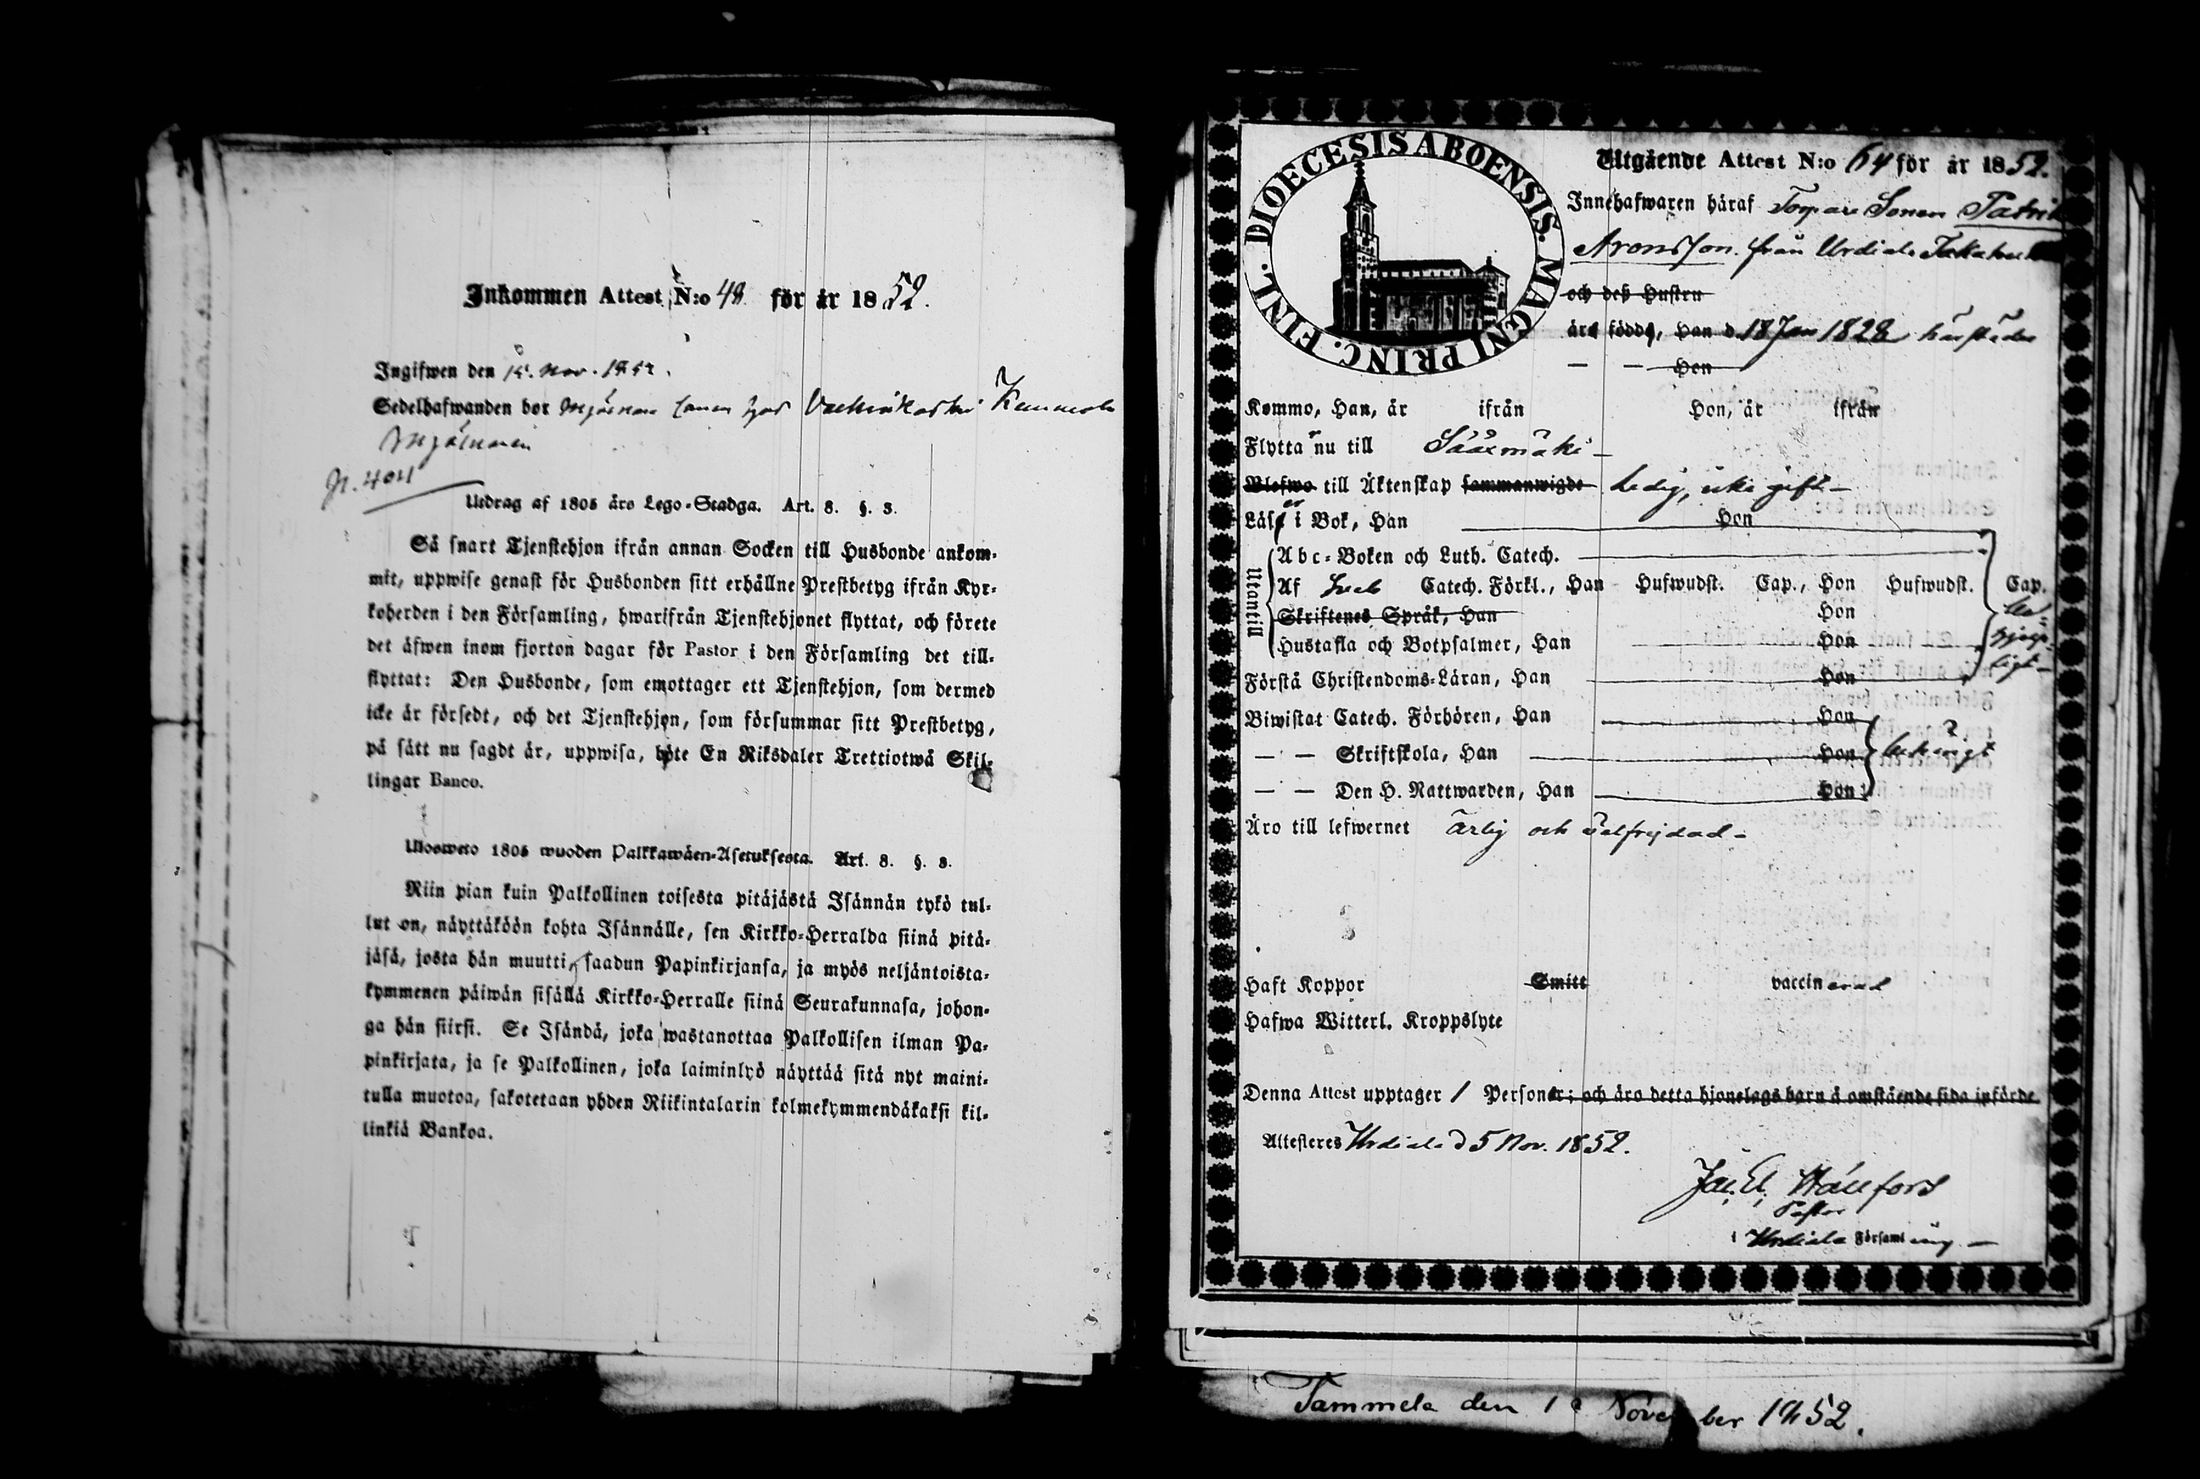 Inkommen Attest N:o 48 för år 1852.
Ingifwen den 15. Nov. 1852.
Sedelhafwanden bor Mjölnare sonen hos
Mjölnaren
Utdrag af 1805 års Lego-Stadga. Art. 8. §. 3.
Så snart Tjenstehjon ifrån annan Socken till Husbonde ankom-
mit, uppwise genast för Husbonden sitt erhållne Prestbetyg ifrån Kyr-
koherden i den Församling, hwarifrån Tjenstehjonet flyttat, och förete
det äfwen inom fjorton dagar för Pastor i den Församling det till-
flyttat: Den Husbonde, som emottager ett Tjenstehjon, som dermed
icke är försedt, och det Tjenstehjon, som försummar sitt Prestbetyg,
på sätt nu sagdt är, uppwisa, böte En Riksdaler Trettiotwå Skil-
lingar Banco.
Ulosweto 1805 wuoden Palkkawäen-Asetuksesta. Art. 8. §. 3.
Niin pian kuin Palkollinen toisesta pitäjästä Isännän tykö tul-
lut on, näyttäköön kohta Isännälle, sen Kirkko-Herralda siinä pitä-
jäsä, josta hän muutti, saadun Papinkirjansa, ja myös neljäntoista-
kymmenen päiwän sisällä Kirkko-Herralle siinä Seurakunnasa, johon-
ga hän siirsi. Se Isändä, joka wastanottaa Palkollisen ilman Pa-
pinkirjata, ja se Palkollinen, joka laiminlyö näyttää sitä nyt maini-
tulla muotoa, sakotetaan yhden Riikintalarin kolmekymmendäkaksi kil-
linkiä Bankoa.
DIOECESIS ABOENSIS. MAGNI PRINC. FINL.
Utgående Attest N:o 64 för år 1852.
Innehafwaren häraf Torpare Sonen Patrik
Aronsson från Urdiala
och deß Hustru
äro födde, Han d 18 Jan 1828 härstädes
— — Hon
Kommo, Han, år ifrån Hon, år ifrån
Flytta r nu till Sääxmäki —
Blefwo till Äktenskap sammanwigde Ledig, icke gift —
Läsa er i Bok, Han Hon
Utantill
Abc-Boken och Luth. Catech.
Af Sveb Catech. Förkl., Han Hufwudst. Cap., Hon Hufwudst. Cap.
Skriftenes Språk, Han Hon
Hustafla och Botpsalmer, Han Hon
Förstå Christendoms-Läran, Han Hon
Biwistat Catech. Förhören, Han Hon
— — Skriftskola, Han Hon
— — Den H. Nattwarden, Han Hon
Äro till lefwernet ärlig och välfrejdad —
Haft Koppor Smitt vaccin erad
Hafwa Witterl. Kroppslyte
Denna Attest upptager 1 Personer; och äro detta hjonelags barn å omstående sida införde.
Attesteres Urdiala d 5 Nov. 1852.
Pastor
i Urdiala Församl ing —
Tammela den November 1852.